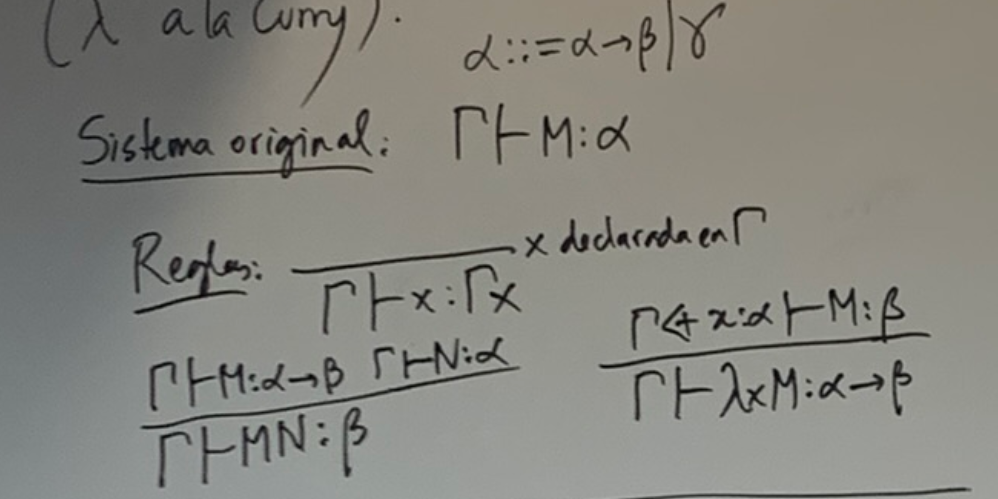 (λ a la Curry).
α::=α→β|γ
Sistema original: Γ⊢M:α
Reglas: ――― x declarada en Γ
Γ⊢x:Γx
Γ⊢M:α→β Γ⊢N:α
Γ⊢MN:β
Γ<+x:α⊢M:β
Γ⊢λxM:α→β